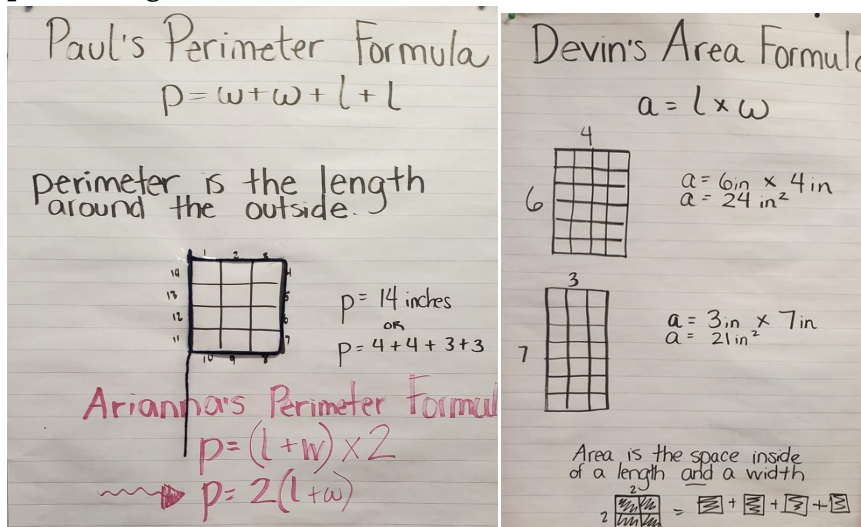 Paul's Perimeter Formula
p = w + w + l + l
perimeter is the length
around the outside.
1 2 3
14 4
13 5
12 6
11 7
10 9 8
p = 14 inches
OR
p = 4 + 4 + 3 + 3
Arianna's Perimeter Formul
p = (l + w) x 2
p = 2(l + w)
Devin's Area Formula
a = l x w
4
6
a = 6in x 4in
a = 24 in²
3
7
a = 3in x 7in
a = 21in²
Area is the space inside
of a length and a width
2
2 = + + +